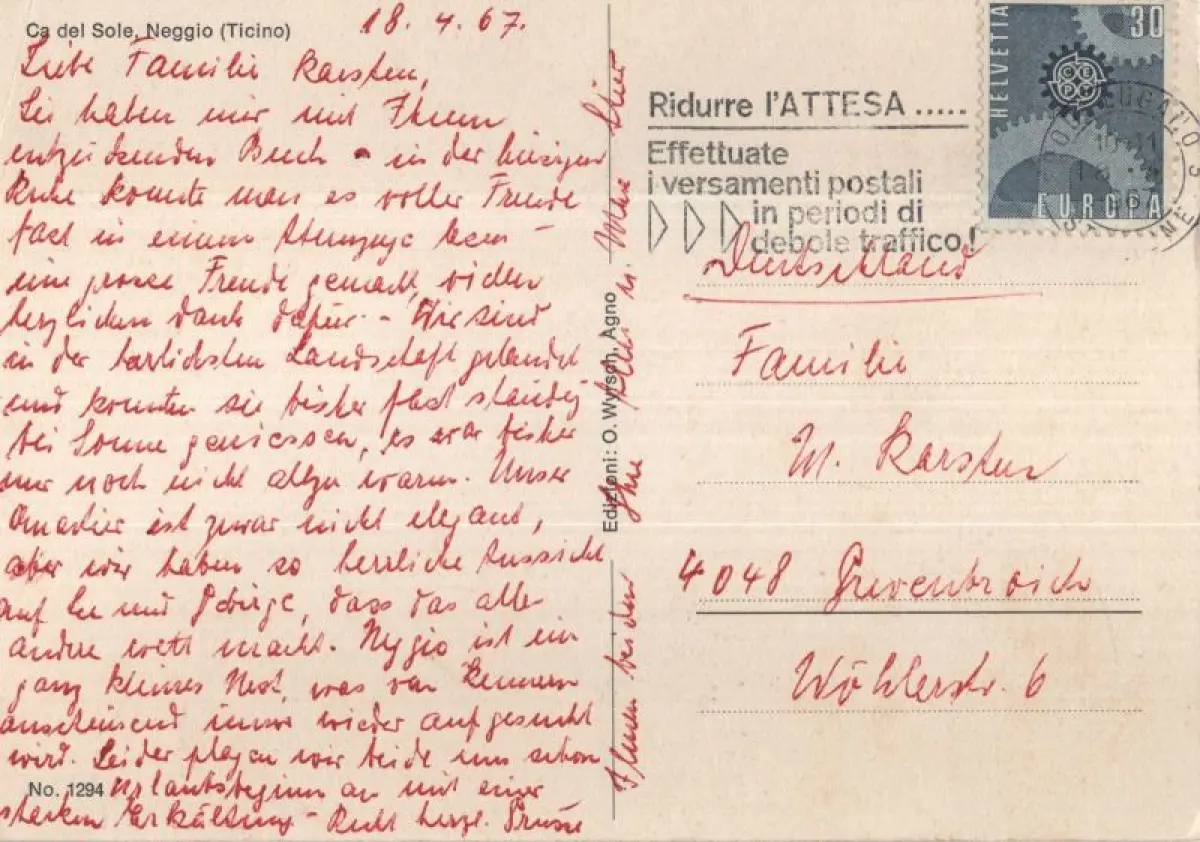 Ca del Sole, Neggio (Ticino)
18. 4. 67.
Liebe Familie Karsten,
Sie haben mir mit Ihrem
entzückenden Buch - in der hiesigen
Ruhe konnte man es voller Freude
fast in einem Atemzuge lesen -
eine grosse Freude gemacht, vielen
herzlichen Dank dafür - Wir sind
in der herrlichsten Landschaft gelandet
und konnten sie bisher fast ständig
bei Sonne geniessen, es war bisher
nur noch nicht allzu warm. Unser
Quartier ist zwar nicht elegant,
aber wir haben so herrliche Aussicht
auf See und Gebirge, dass das alles
andere wett macht. Neggio ist ein
ganz kleines Nest, was von Kennern
anscheinend immer wieder aufgesucht
wird. Leider plagen wir beide uns schon
No. 1294 Urlaubsbeginn an mit einer
starken Erkältung - Recht herzl. Grüsse
Ihnen beiden Ihre
Edizioni: O. Wyrsch, Agno
Ridurre l'ATTESA .....
Effettuate
i versamenti postali
in periodi di
debole traffico!
HELVETIA
30
CEPT
EUROPA
Deutschland
Familie
M. Karsten
4048 Grevenbroich
Wöhlerstr. 6